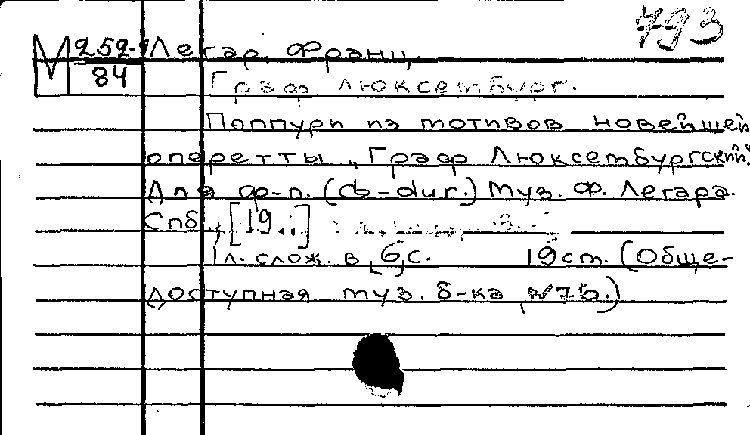 793
М 252-9/84 Легар, Франц.
Граф Люксембург.
Поппури из мотивов новейшей
оперетты „Граф Люксембургский".
Для ф-п. (cb-dur.) Муз. Ф. Легара.
Спб., [19..]
1 л. слож. в 6 с. 19 ст. (Обще-
доступная муз. б-ка №76.)